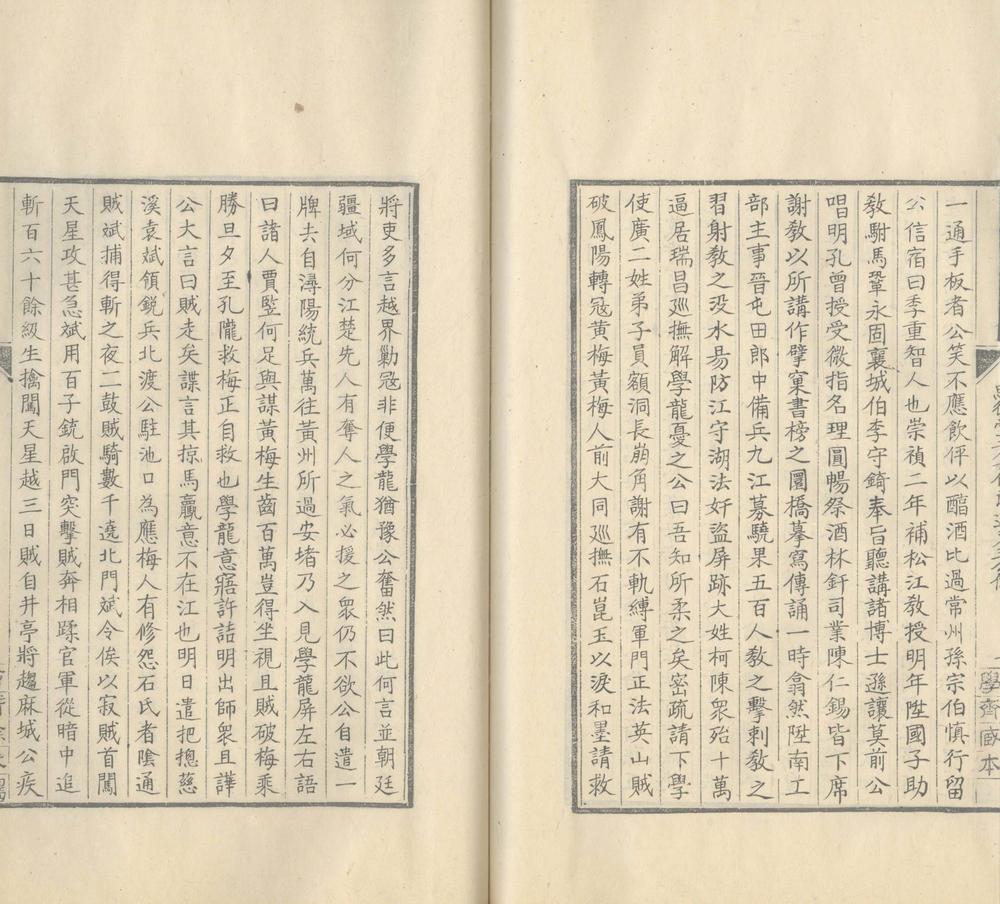 一通手板者公笑不應飲伻以醕酒比過常州孫宗伯慎行留
公信宿曰季重智人也崇禎二年補松江敎授明年陞國子助
敎駙馬鞏永固襄城伯李守錡奉旨聽講諸博士遜讓莫前公
唱明孔曾授受微指名理圓暢祭酒林釬司業陳仁錫皆下席
謝敎以所講作擘窠書榜之圜橋摹寫傳誦一時翕然陞南工
部主事晉屯田郎中備兵九江募驍果五百人敎之擊刺敎之
習射敎之沒水昜防江守湖法奸盜屏跡大姓柯陳衆殆十萬
逼居瑞昌廵撫解學龍憂之公曰吾知所柔之矣密疏請下學
使廣二姓弟子員額洞長崩角謝有不軌縛軍門正法英山賊
破鳳陽轉寇黃梅黃梅人前大同廵撫石崑玉以淚和墨請救
學齋
本
將吏多言越界勦寇非便學龍猶豫公奮然曰此何言並朝廷
疆域何分江楚先人有奪人之氣必援之衆仍不欲公自遣一
牌去自潯陽統兵萬往黃州所過安堵乃入見學龍屏左右語
曰諸人賈豎何足與謀黃梅生齒百萬豈得坐視且賊破梅乘
勝旦夕至孔隴救梅正自救也學龍意寤許詰明出師衆且譁
公大言曰賊走矣諜言其掠馬驘意不在江也明日遣把摠慈
溪袁斌領銳兵北渡公駐池口為應梅人有修怨石氏者陰通
賊斌捕得斬之夜二鼓賊騎數千遶北門斌令俟以寂賊首闖
天星攻甚急斌用百子銃啟門突擊賊奔相蹂官軍從暗中追
斬百六十餘級生擒闖天星越三日賊自井亭將趨麻城公疾